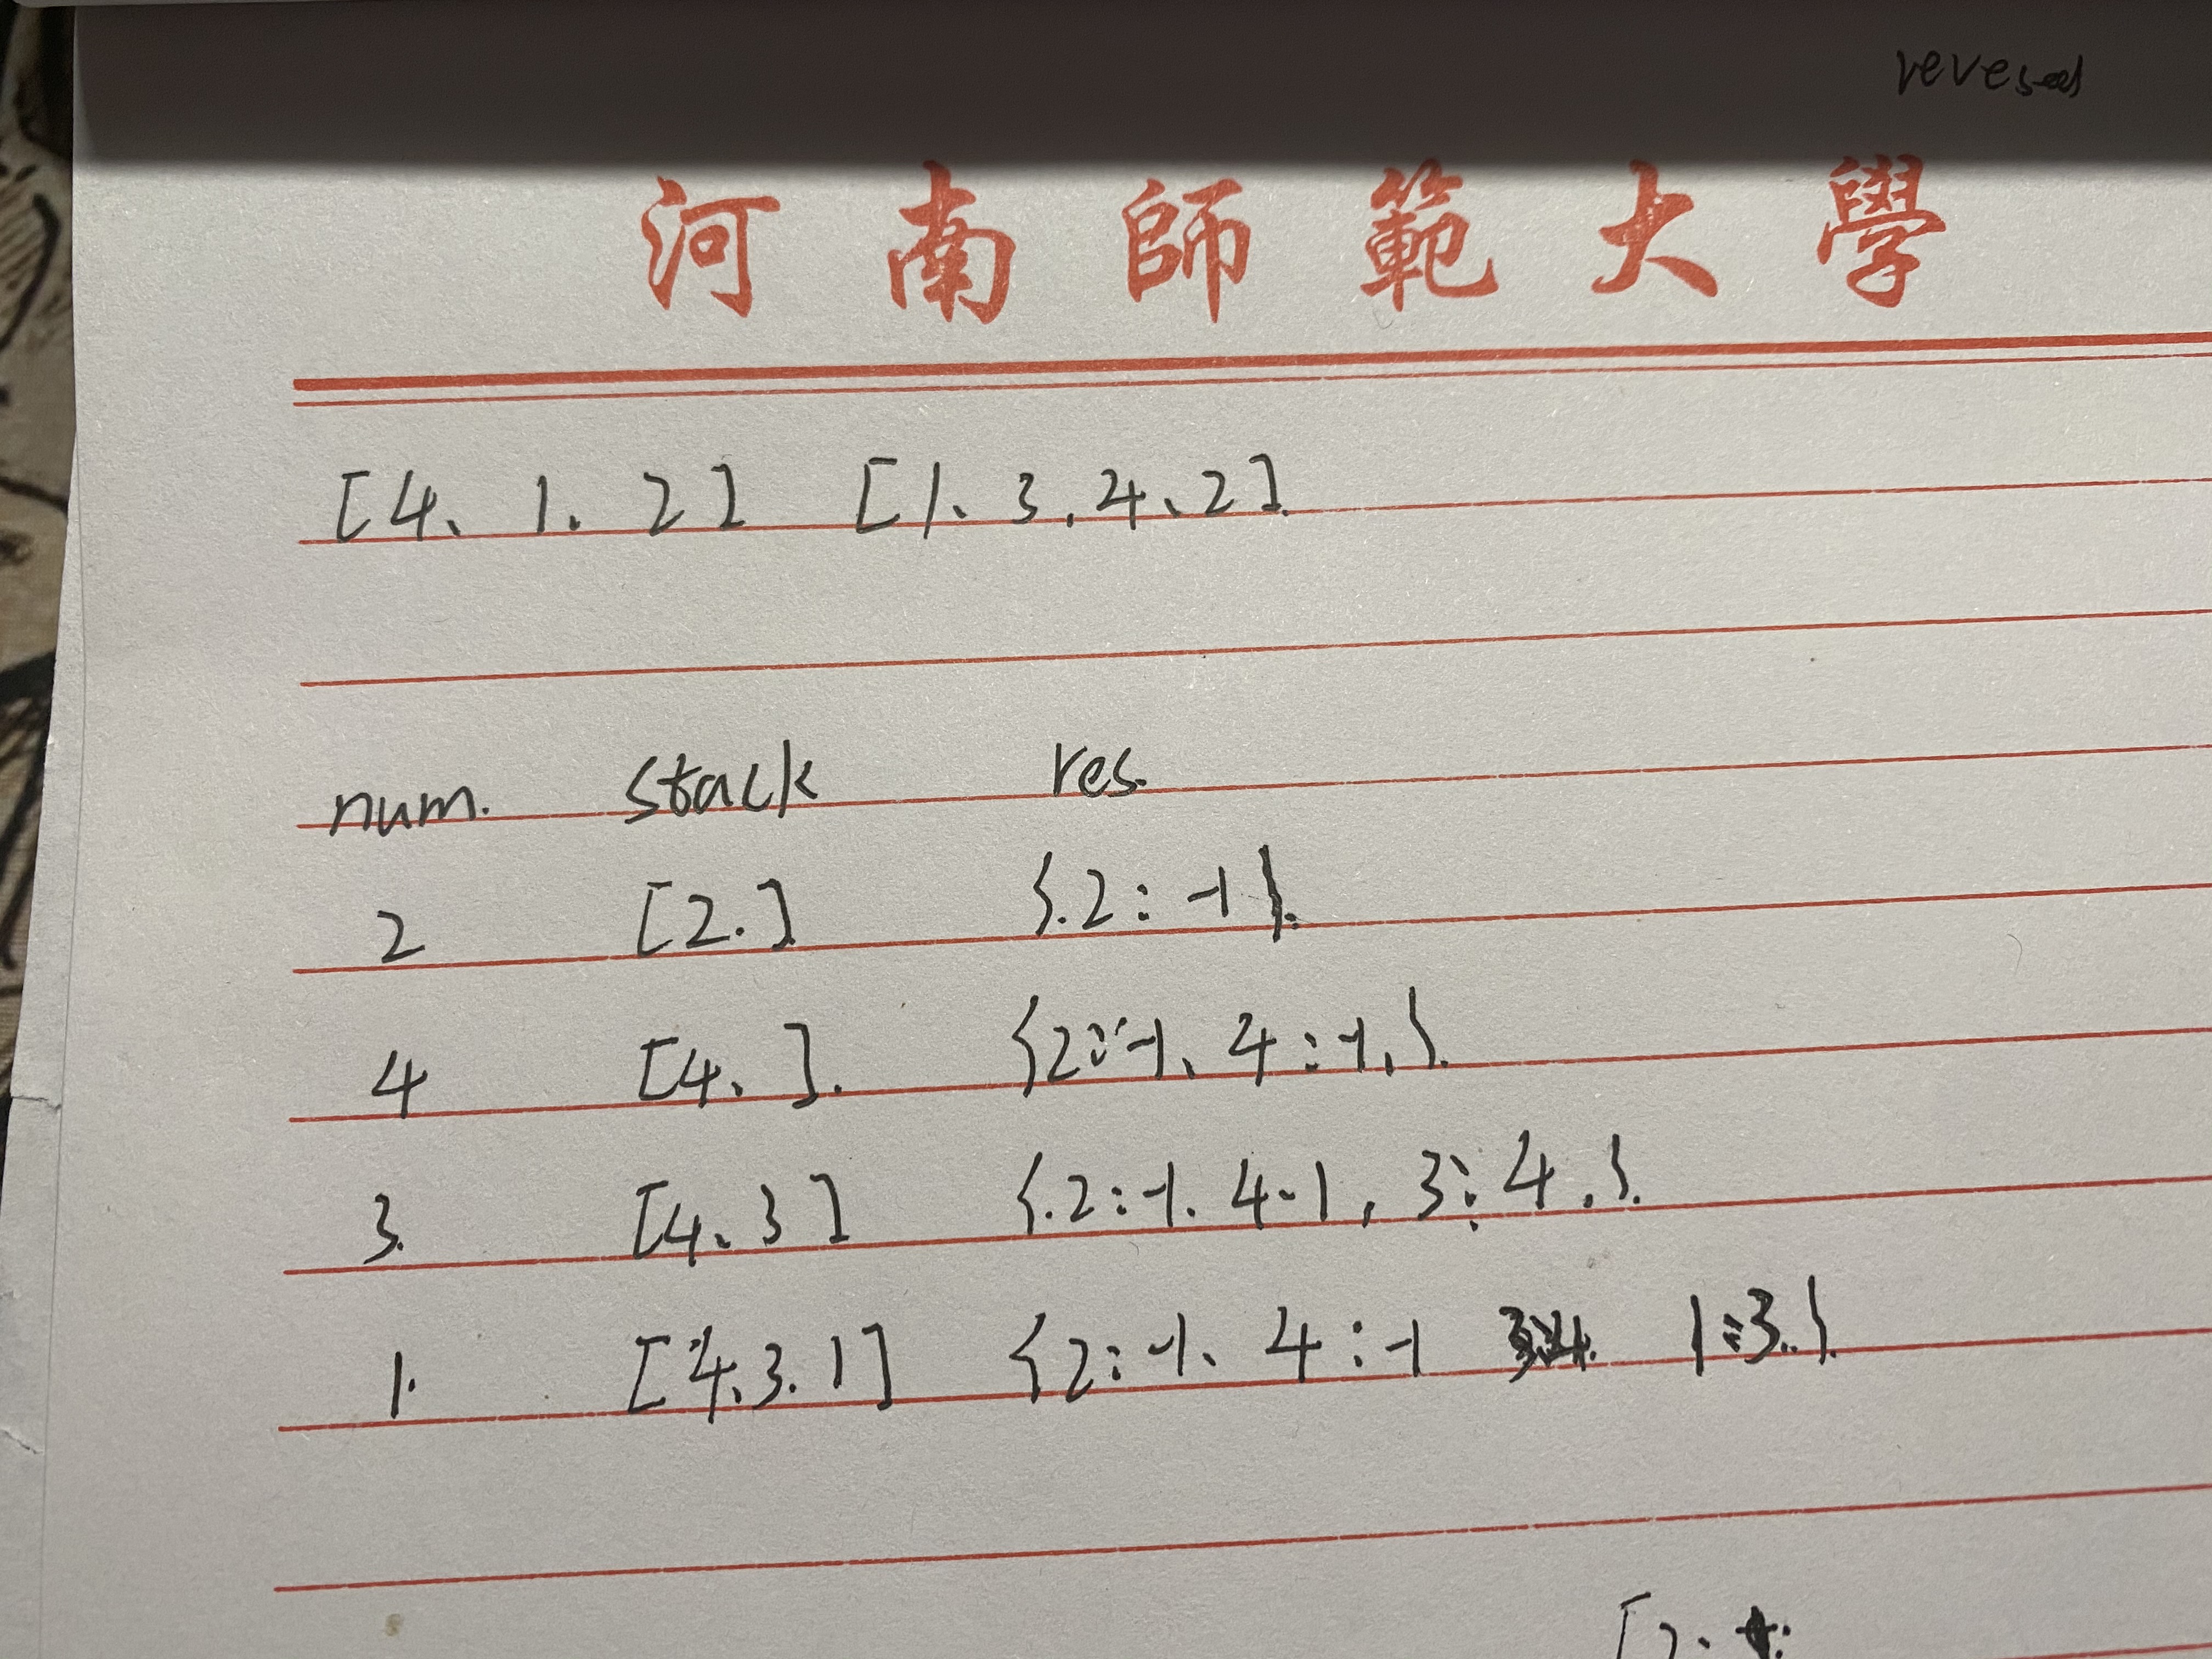 河南師範大學
[4、1. 2] [1、3.4、2].
num. stack res.
2 [2.] {.2:-1}.
4 [4、]. {2:-1、4:-1,}.
3. [4、3] {.2:-1、4-1,3:4,}.
1. [4、3.1] {2:-1、4:-1 3:4. 1:3.}.